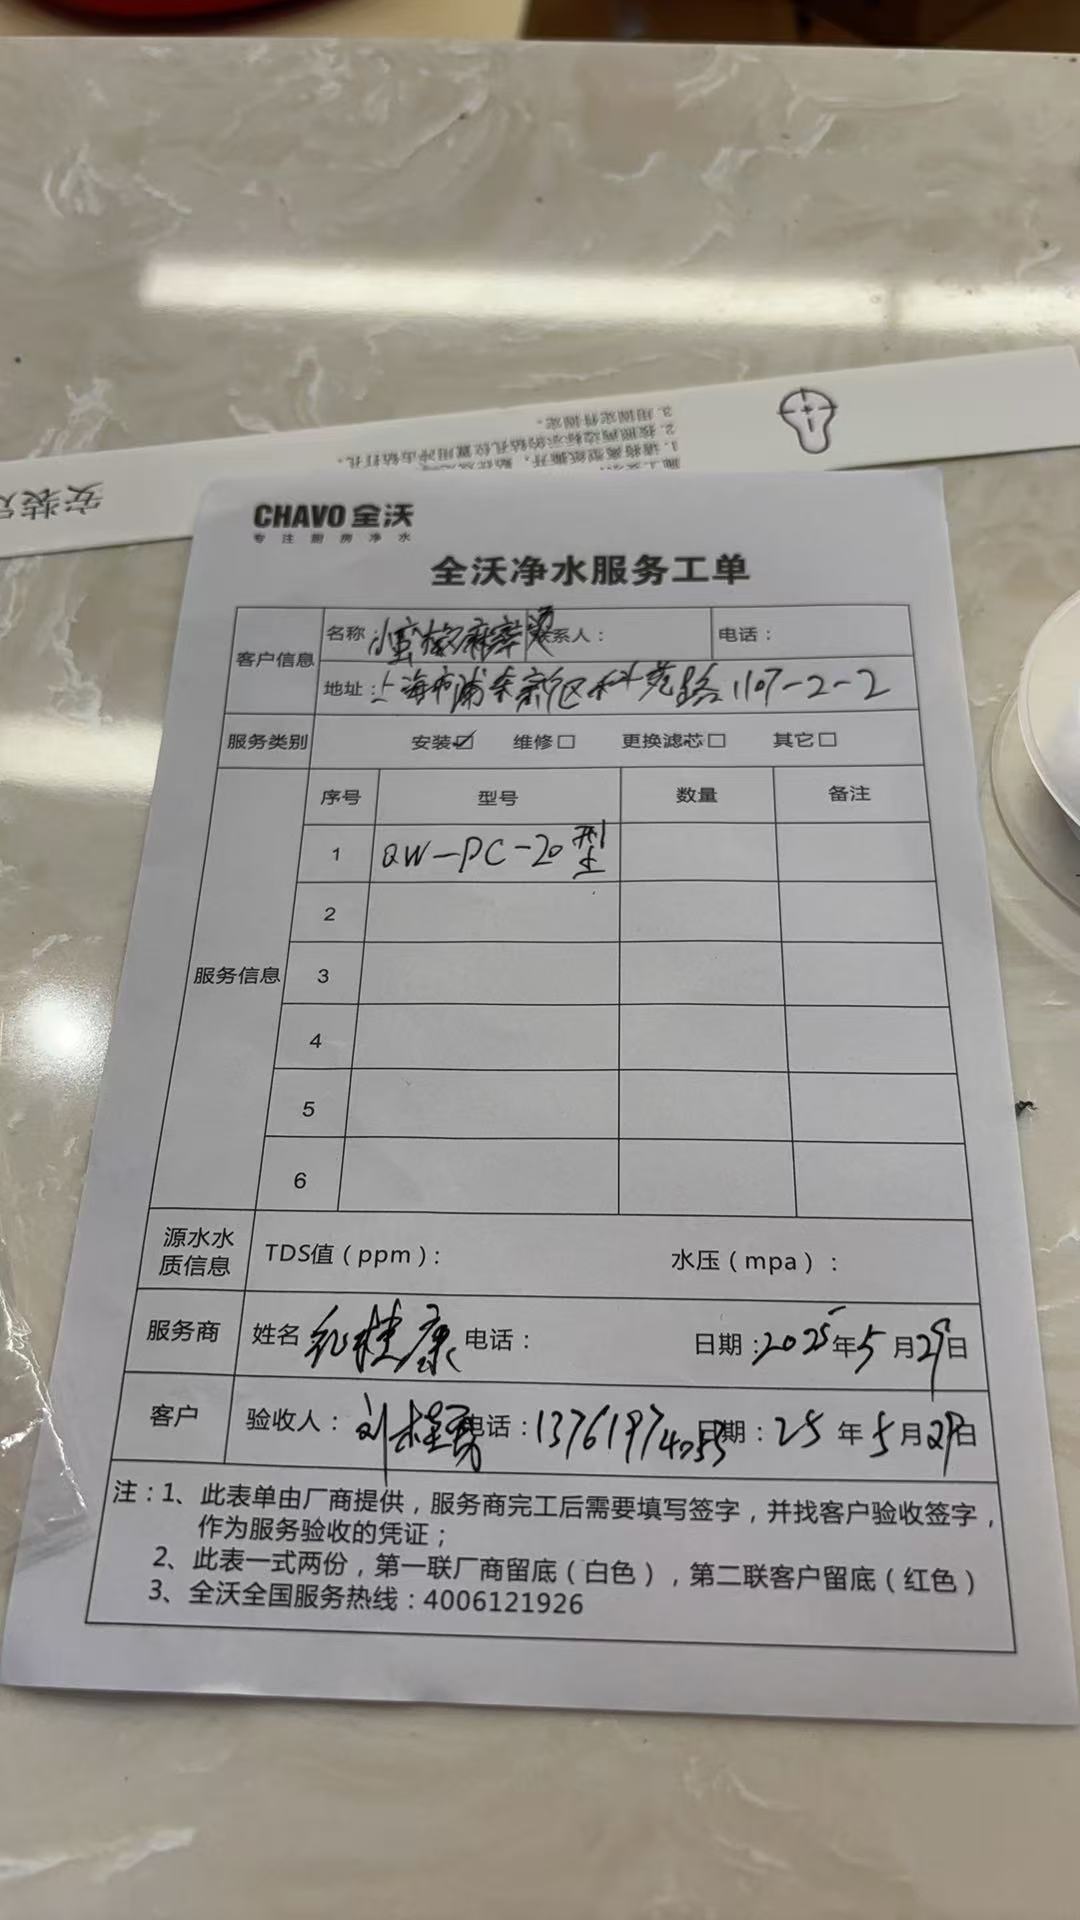 3. 用固定件固定。
2. 按照两边标示的钻孔位置用冲击钻打孔。
1. 请将离型纸撕开，
安装
CHAVO 全沃
专注厨房净水
全沃净水服务工单
客户信息 名称 小蛮椒麻辣烫 联系人： 电话：
地址：上海市浦东新区科苑路1107-2-2
服务类别 安装☑ 维修□ 更换滤芯□ 其它□
服务信息 序号 型号 数量 备注
1 QW-PC-20型
2
3
4
5
6
源水水质信息 TDS值（ppm）： 水压（mpa）：
服务商 姓名 桂康 电话： 日期：2025年5月29日
客户 验收人：刘 电话：13761974055 日期：25年5月29日
注：1、此表单由厂商提供，服务商完工后需要填写签字，并找客户验收签字，
作为服务验收的凭证；
2、此表一式两份，第一联厂商留底（白色），第二联客户留底（红色）
3、全沃全国服务热线：4006121926